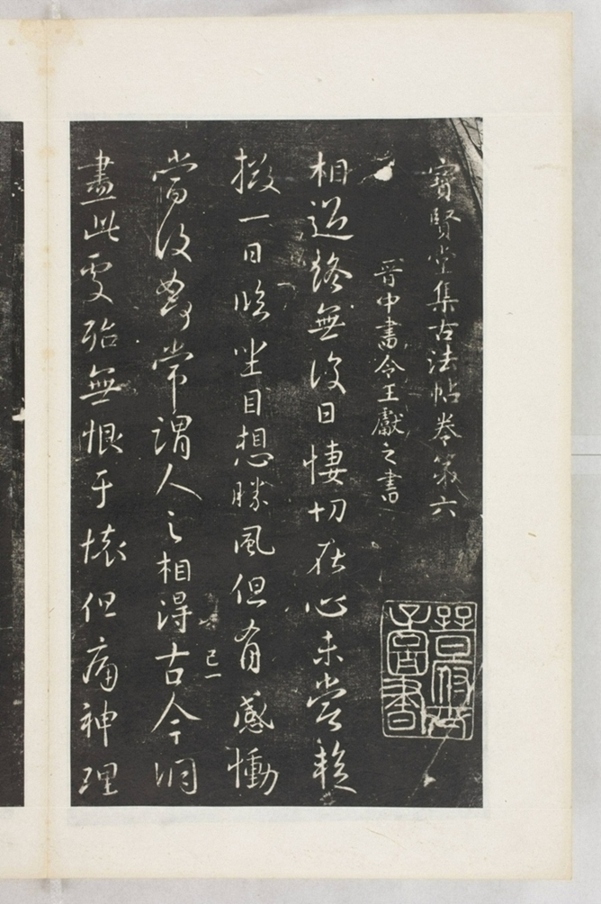 寶賢堂集古法帖卷第六
晉中書令王獻之書
相過終無復日悽切在心未嘗暫
掇一日臨坐目想勝風但有感慟
當復奈何常謂人之相得古今洞
盡此處殆無恨于懷但痛神理
己一